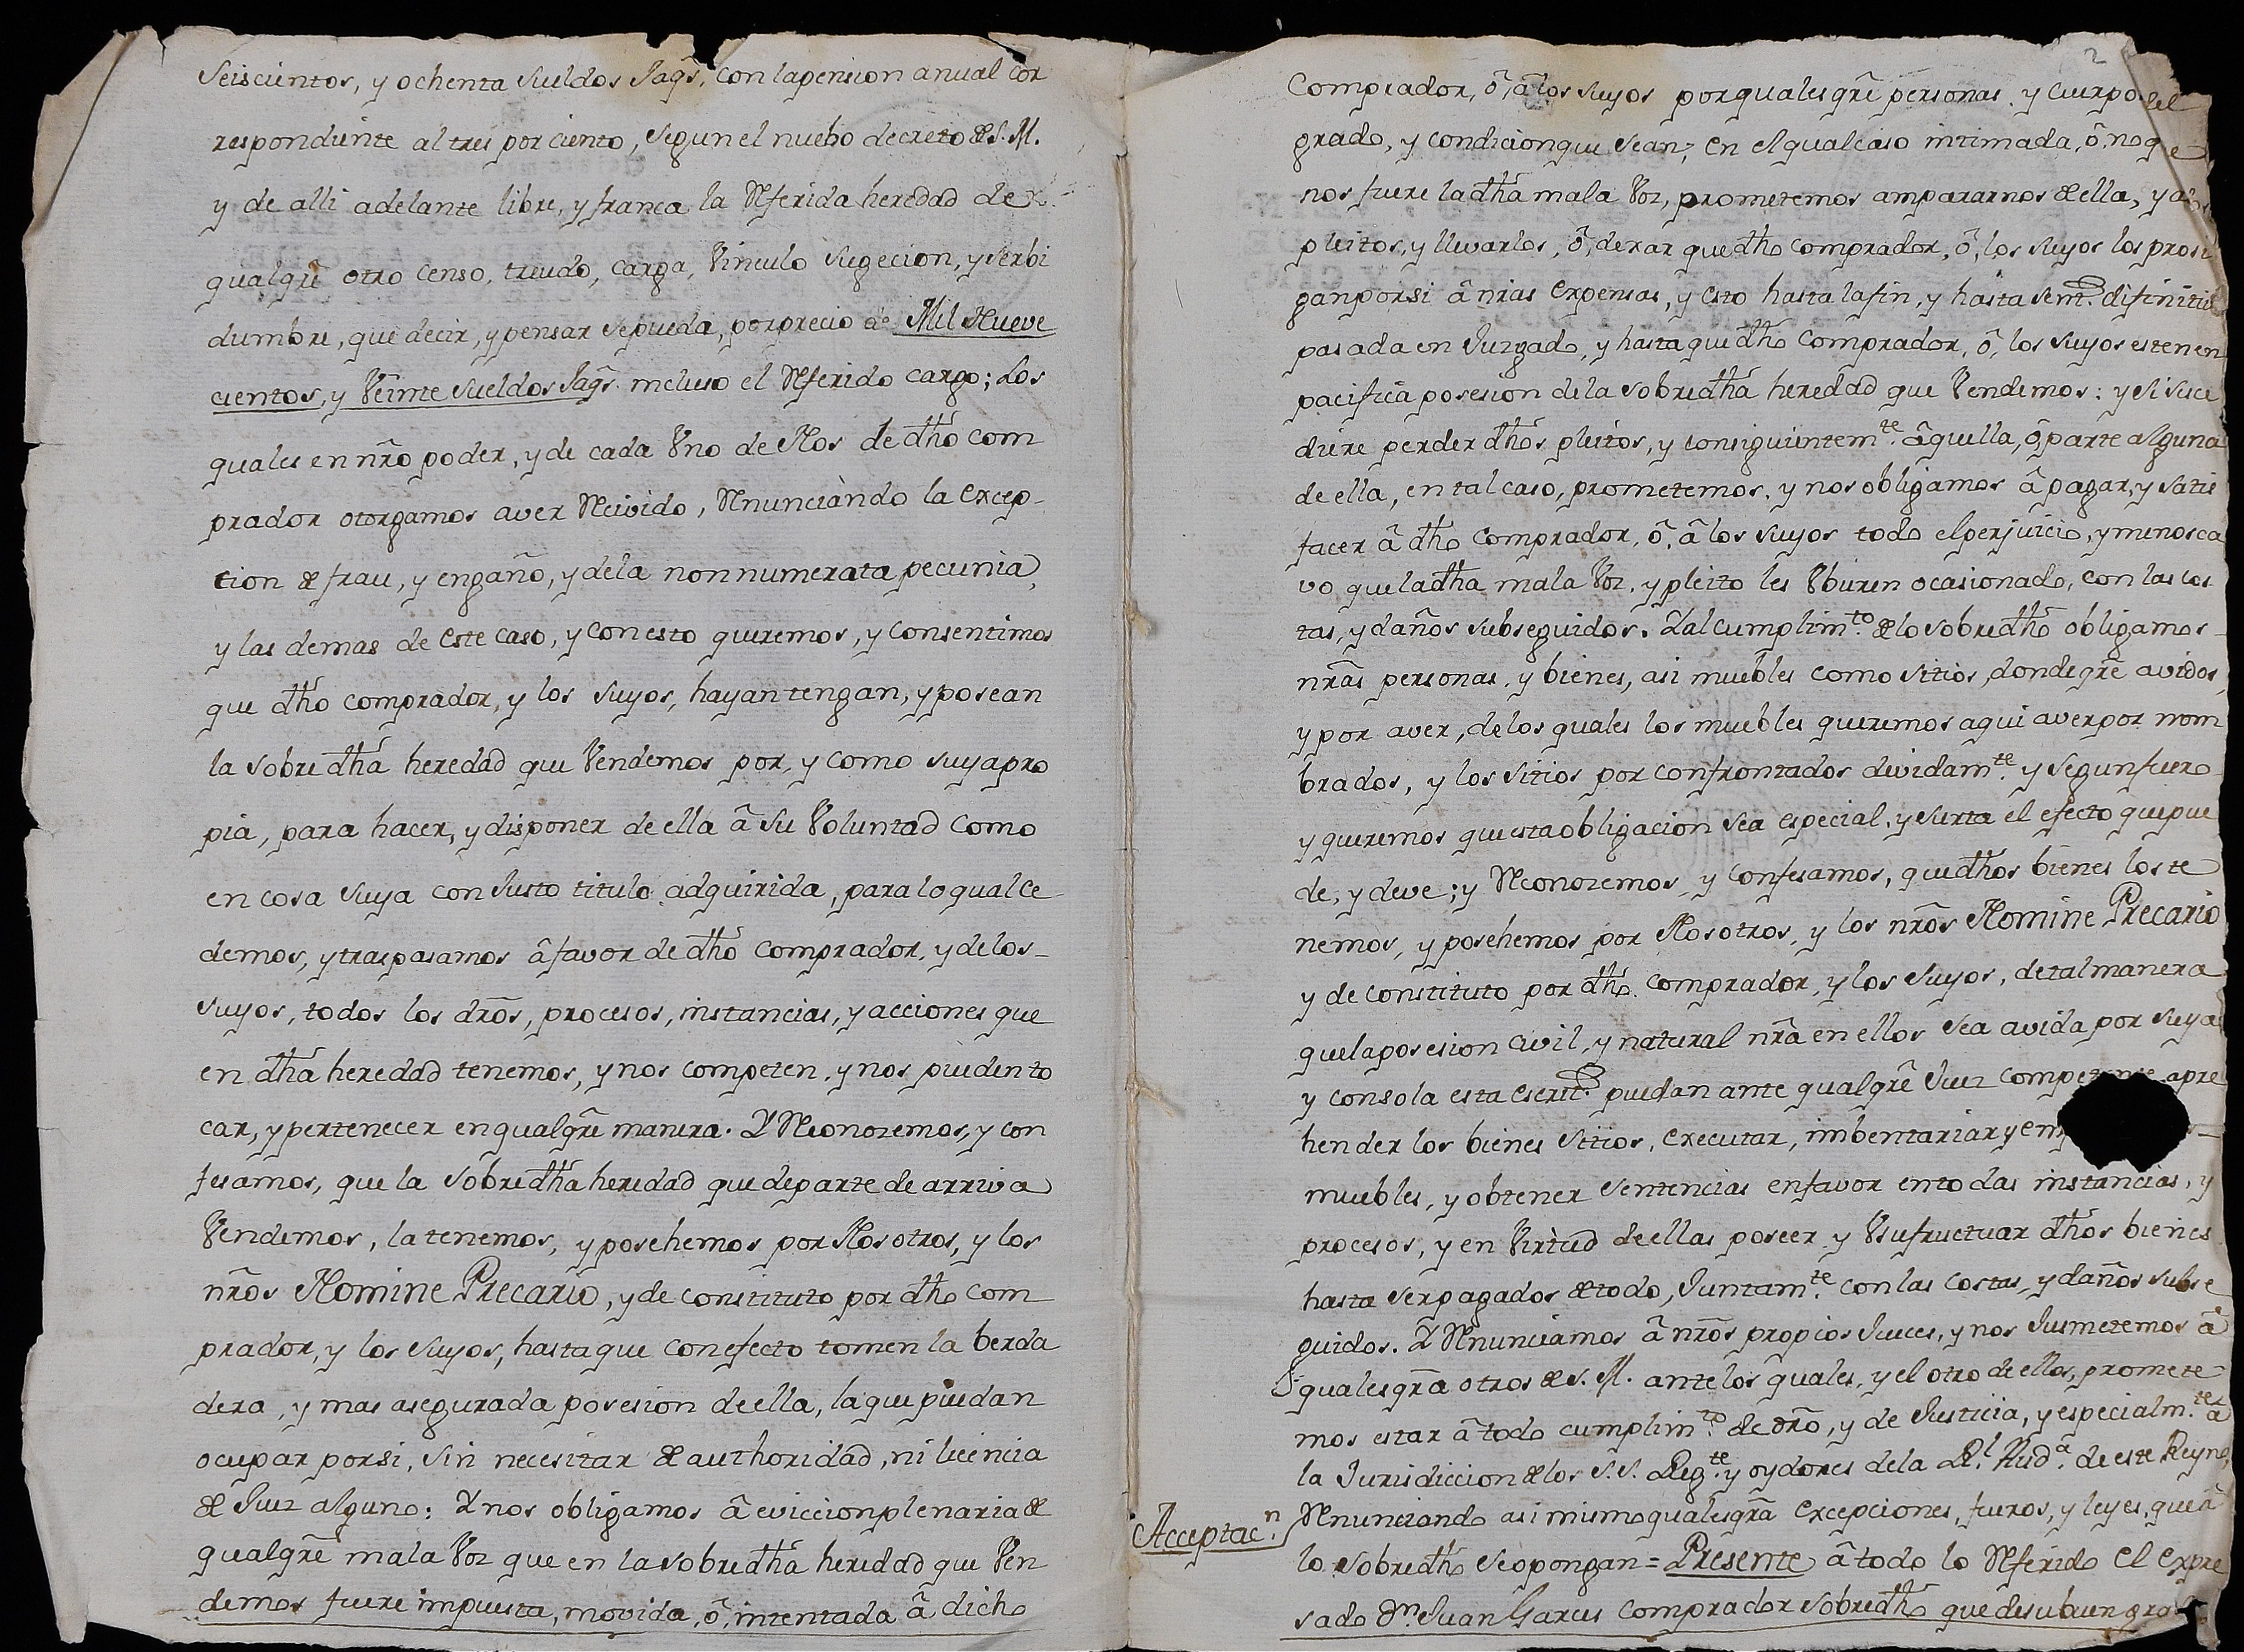 Seiscientos, y ochenta sueldos Jaq.s, con la pension anual cor
respondiente al tres por ciento, segun el nuebo decreto de S. M.
y de alli adelante libre, y franca la Referida heredad de
qualqre otro censo, treudo, carga, Vinculo sugecion, y serbi
dumbre, que decir, y pensar se pueda, por precio de Mil Nueve
cientos, y Veinte sueldos Jaq.s incluso el Referido cargo; Los
quales en nr̃o poder, y de cada Vno de Nos de dho com
prador otorgamos aver Recivido, Renunciando la excep-
cion de frau, y engaño, y dela non numerata pecunia,
y las demas de este caso, y con esto queremos, y consentimos
que dho comprador, y los suyos, hayan tengan, y posean
la sobredha heredad que Vendemos por, y como suya pro
pia, para hacer, y disponer de ella â su Voluntad como
en cosa suya con Justo titulo adquirida, para lo qual Ce-
demos, y traspasamos â favor de dho comprador, y de los-
suyos, todos los dr̃os, procesos, instancias, y acciones que
en dha heredad tenemos, y nos competen, y nos pueden to
car, y pertenecer en qualqre manera. Y Reconozemos, y con
fesamos, que la sobredha heredad que de parte de arriva
Vendemos, la tenemos, y posehemos por Nosotros, y los
nr̃os Nomine Precario, y de constituto por dho com
prador, y los suyos, hasta que con efecto tomen la berda
dera, y mas asegurada posesion de ella, la que puedan
ocupar por si, sin necesitar de authoridad, ni licencia
de Juez alguno: Y nos obligamos â eviccion plenaria de
qualqre mala Voz que en la sobredha heredad que Ven
demos fuere impuesta, movida, ô, intentada â dicho
2
Comprador, ô, â los suyos por qualesqre personas, y cuerpo del
grado, y condicion que sean; en el qual caso intimada, ô, no que
nos fuere la dha mala Voz, prometemos ampararnos de ella, y a los
pleitos, y llevarlos, ô, dexar que dho comprador, ô, los suyos los prosi
gan por si â nr̃as expensas, y esto hasta la fin, y hasta sent.a difinitiva
pasada en Juzgado, y hasta que dho Comprador, ô, los suyos esten en
pacifica posesion de la sobredha heredad que Vendemos: y si suce
diere perder dhos pleitos, y consiguientem.te âquella, ô, parte alguna
de ella, en tal caso, prometemos, y nos obligamos â pagar, y satis
facer â dho Comprador, ô, â los suyos todo el perjuicio, y menosca
vo que la dha mala Voz, y pleito les Vbieren ocasionado, con las cos
tas, y daños subseguidos. Y al cumplim.to de lo sobredho obligamos-
nr̃as personas, y bienes, asi muebles como sitios, dondeqre avidos,
y por aver, de los quales los muebles queremos aqui aver por nom
brados, y los sitios por confrontados devidam.te y segun fuero
y queremos que esta obligacion sea especial, y surta el efecto que pue
de, y deve; y Reconozemos, y confesamos, que dhos bienes los te
nemos, y posehemos por Nosotros, y los nr̃os Nomine Precario
y de constituto por dho comprador, y los suyos, de tal manera
que la posesion civil, y natural nr̃a en ellos sea avida por suya
y con sola esta escrit.a puedan ante qualqre Juez competente apre
hender los bienes sitios, executar, imbentariar y
muebles, y obtener sentencias en favor en todas instancias, y
procesos, y en Virtud de ellas poseer y Vsufructuar dhos bienes
hasta ser pagados de todo, Juntam.te con las costas, y daños subse
guidos. Y Renunciamos â nr̃os propios Jueces, y nos Jusmetemos â
qualesqra otros de S. M. ante los quales, y el otro de ellos, promete-
mos estar â todo cumplim.to de dr̃o, y de Justicia, y especialm.te â
la Jurisdiccion de los S.S. Reg.te y oydores de la R.l Aud.a de este Reyno,
Acceptac.n Renunciando asi mismo qualesqra excepciones, fueros, y leyes, que â
lo sobredho se opongan = Presente â todo lo Referido el expre
sado Dn. Juan Garces comprador sobredho que de su buen grado